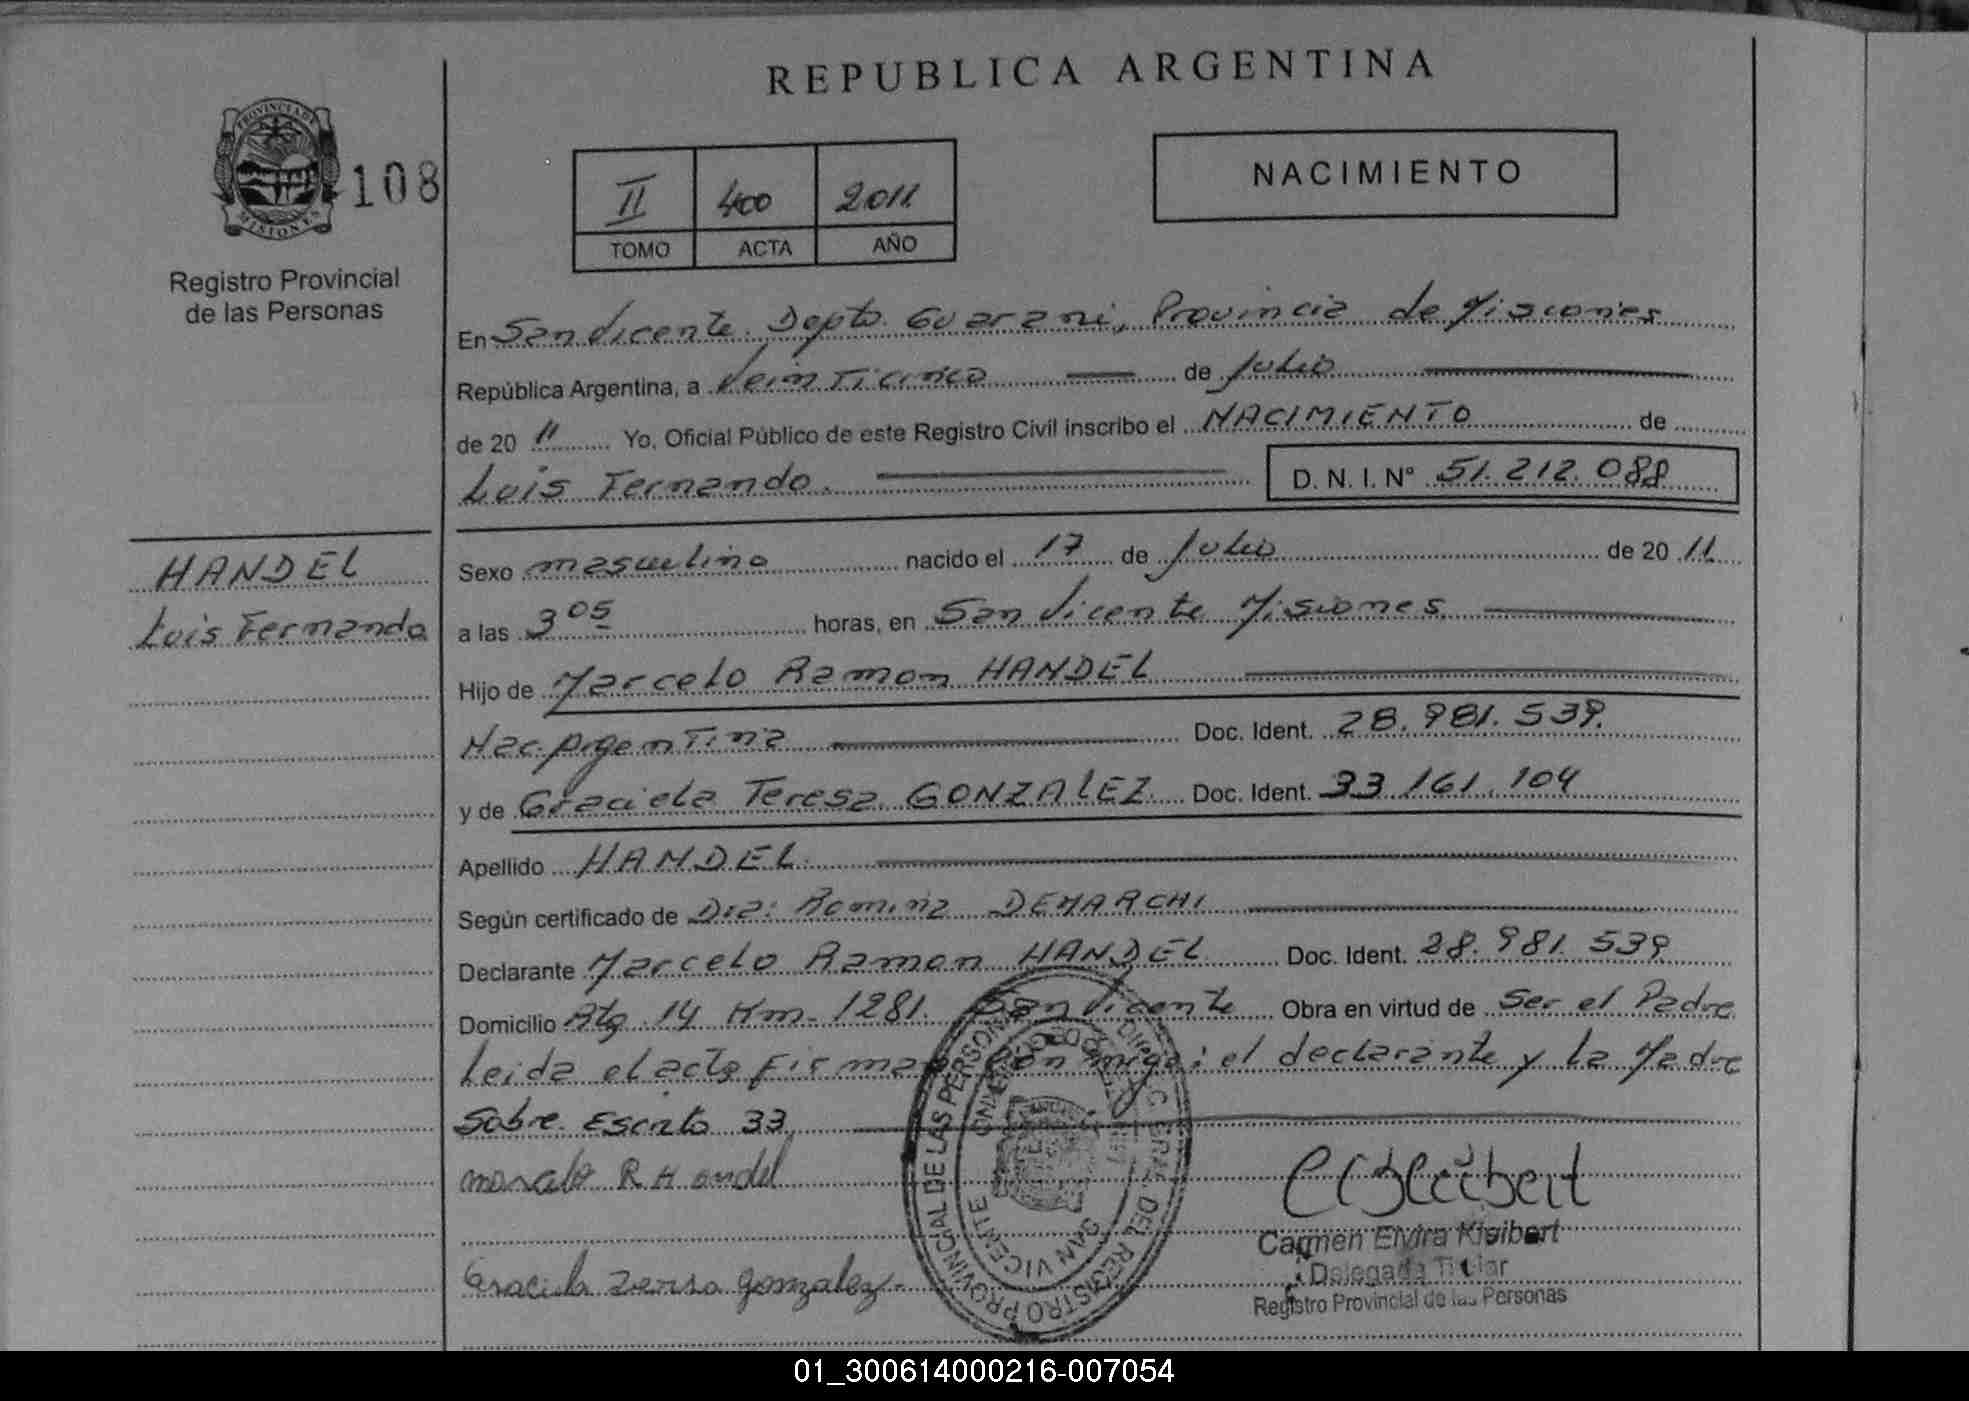 REPUBLICA ARGENTINA
PROVINCIA DE
MISIONES
108
Registro Provincial
de las Personas
II 400 2011
TOMO ACTA AÑO
NACIMIENTO
En San Vicente. Depto. Guarani, Provincia de Misiones
República Argentina, a Veinticinco de Julio
de 2011 Yo, Oficial Público de este Registro Civil inscribo el NACIMIENTO de
Luis Fernando. D. N. I. N° 51.212.088
HANDEL
Luis Fernando
Sexo masculino nacido el 17 de Julio de 2011
a las 3 05 horas, en San Vicente Misiones
Hijo de Marcelo Ramon HANDEL
Nac. Argentina Doc. Ident. 28.981.539.
y de Graciela Teresa GONZALEZ Doc. Ident. 33 161.104
Apellido HANDEL
Según certificado de Dra: Romina DEMARCHI
Declarante Marcelo Ramon HANDEL Doc. Ident. 28.981.539
Domicilio Rta 14 Km. 1281. San Vicente Obra en virtud de Ser el Padre
Leida el acta firman conmigo: el declarante y la Madre
Sobre Escrito 33
Marcelo R Handel
Graciela Teresa Gonzalez
Carmen Elvira Kleibert
Delegada Titular
Registro Provincial de las Personas
REGISTRO PROVINCIAL DE LAS PERSONAS
SAN VICENTE
01_300614000216-007054